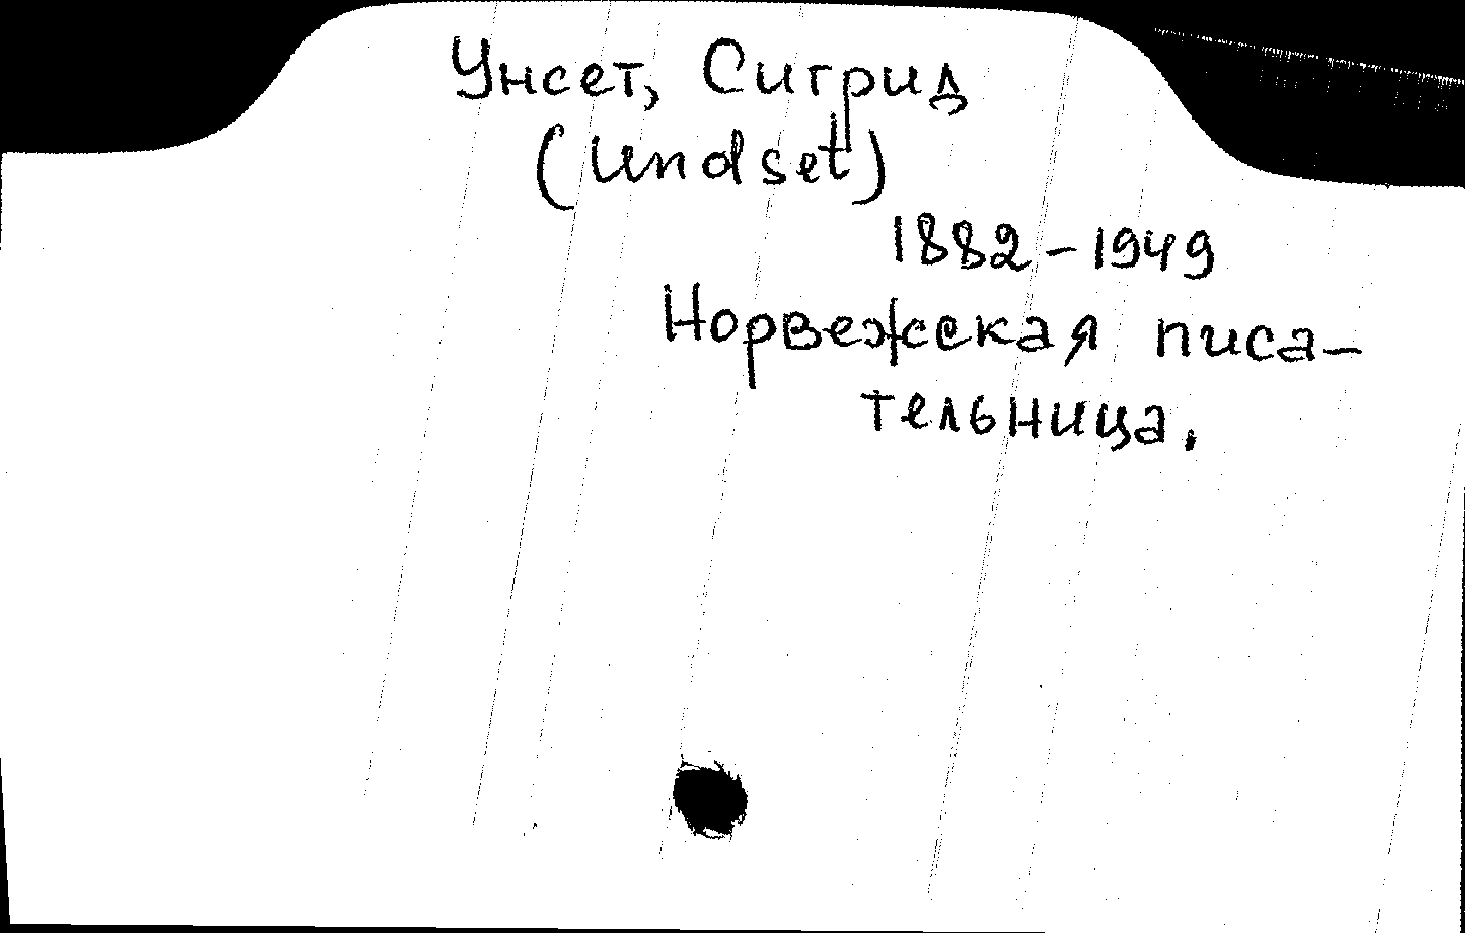 Унсет, Сигрид
(Undset)
1882-1949
Норвежская писа-
тельница.